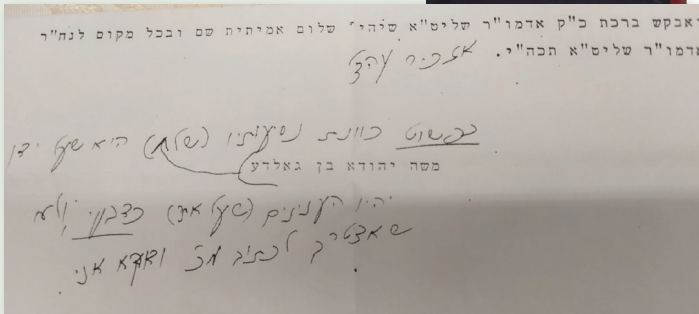 ואבקש ברכת כ"ק אדמו"ר שליט"א שיהי' שלום אמיתית שם ובכל מקום לנח"ר
אדמו"ר שליט"א תכה"י.
אזכיר עהצ
כפשוט כוונת נסיעותיו (שלו) היא שעל ידו
משה יהודא בן גאלדע
יהיו הענינים (שעל אתר) כדבעי ולא
שאצטרך לכתוב מכ' ודוקא אני